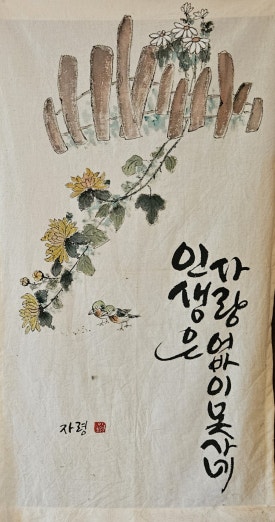 인생은
사랑 없이 못사네
자령